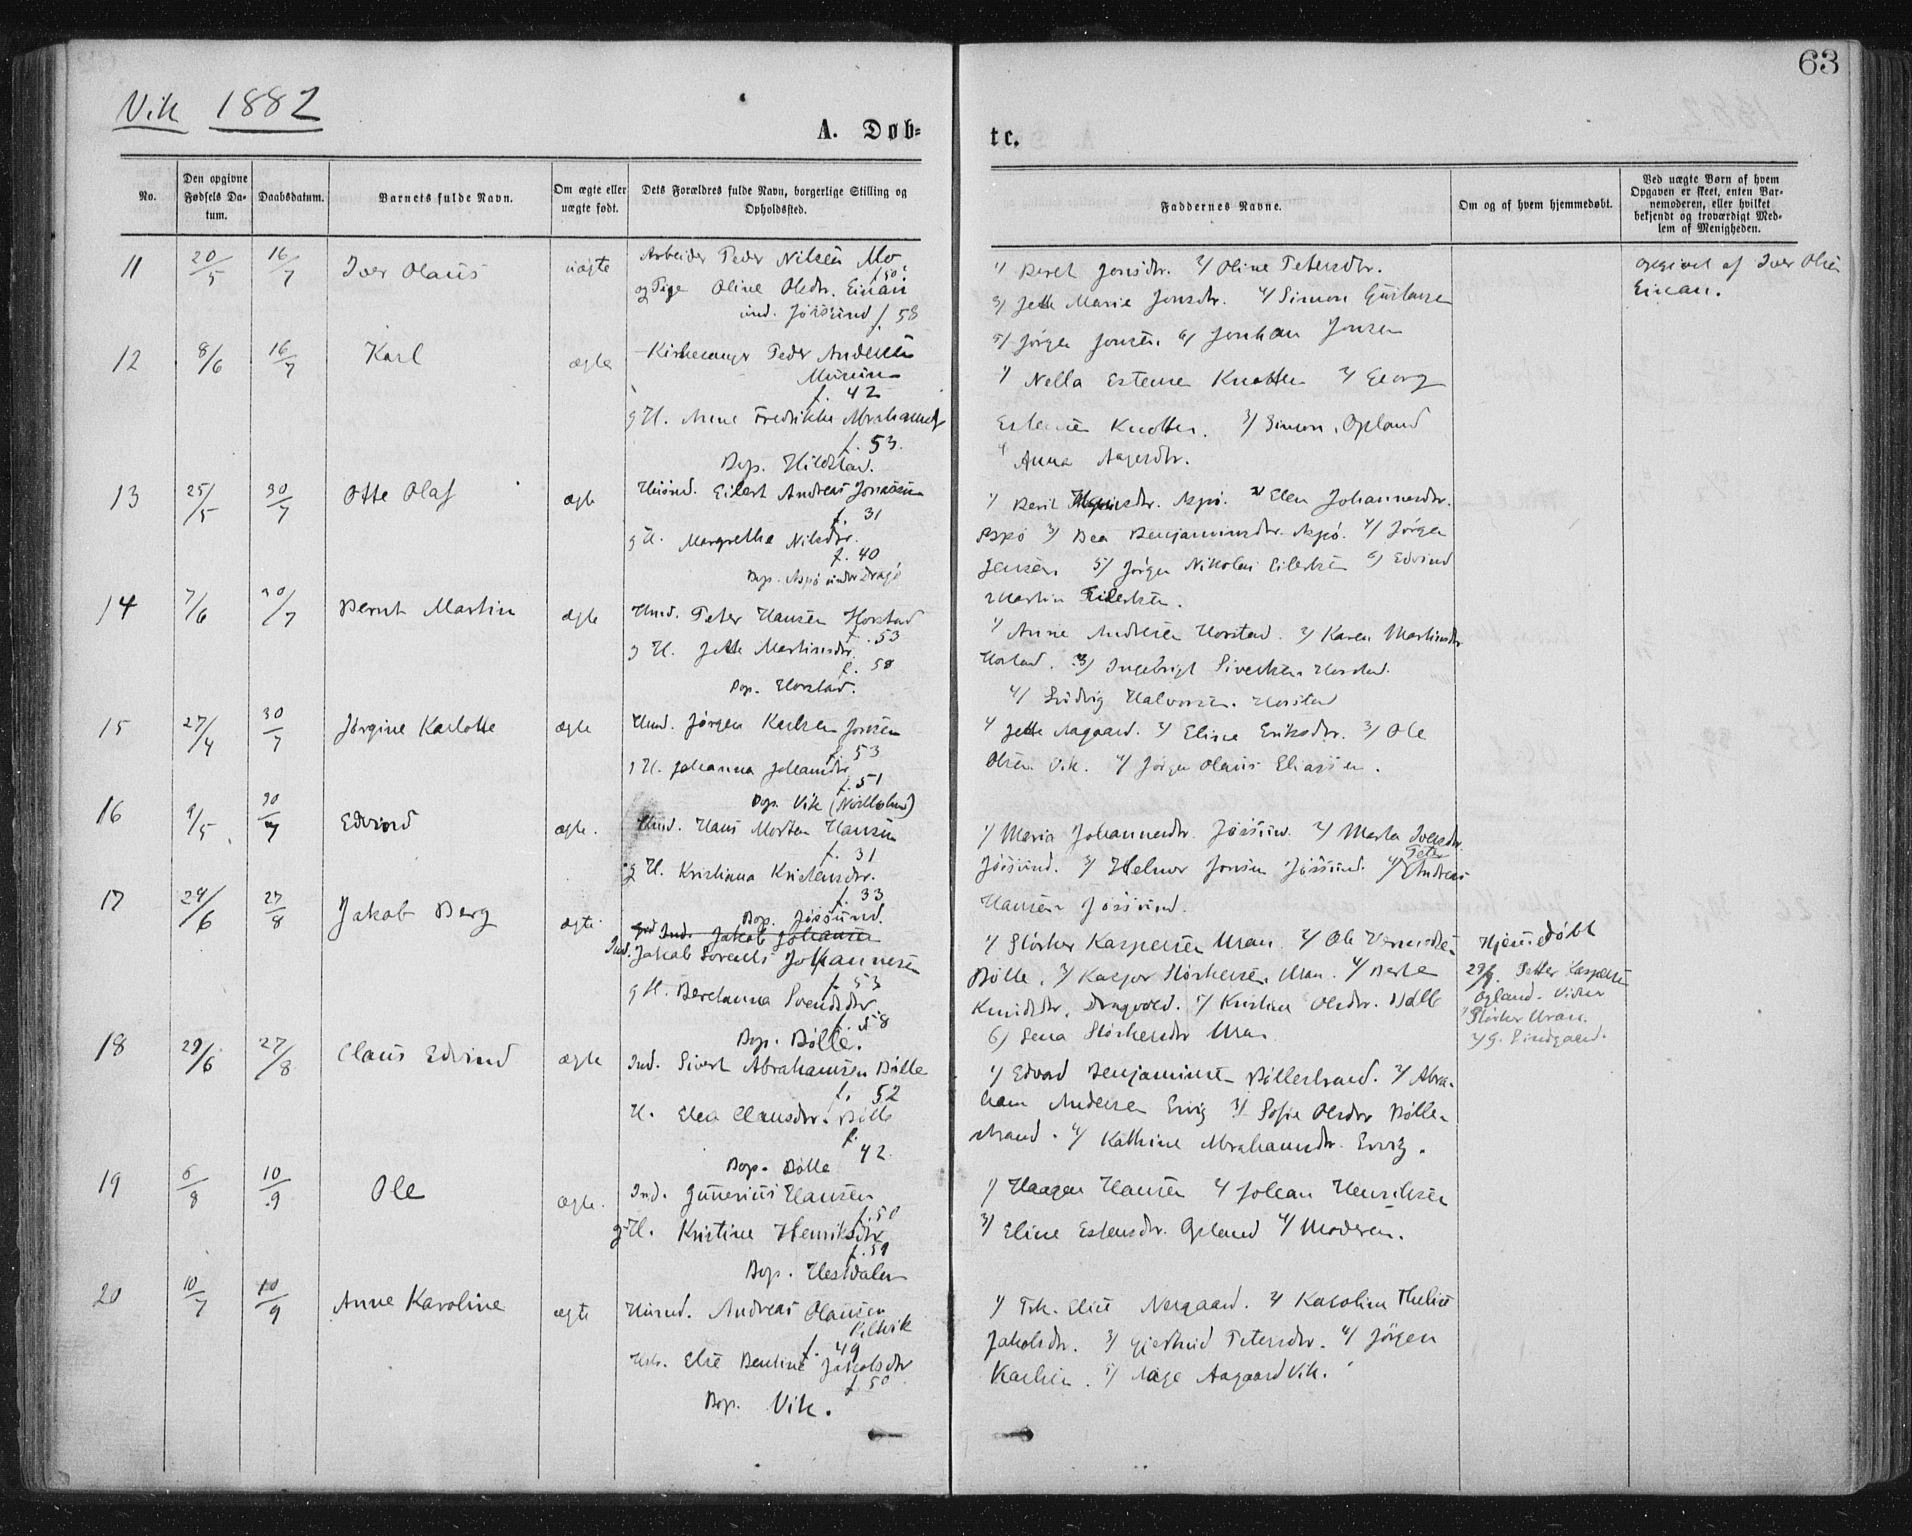 63
Vik 1882
A. Døb-
te.
No.
Den opgivne Fødsels Da-tum.
Daabsdatum.
Barnets fulde Navn.
Om ægte eller uægte født.
Dets Forældres fulde Navn, borgerlige Stilling og Opholdssted.
Faddernes Navne.
Om og af hvem hjemmedøbt.
Ved uægte Børn af hvem Opgaven er skeet, enten Bar-nemoderen, eller hvilket bekjendt og troværdigt Med-lem af Menigheden.
11 20/5 16/7 Iver Olaus uægte
Arbeider Peder Nilsen Mo
f. 50
og Pige Oline Olsdr. Einan
ind. Jössund f. 58
1/ Beret Jonsdtr. 2/ Oline Petersdtr.
3/ Jette Marie Jonsdtr. 4/ Simon
5/ Jørgen Jonsen. 6/ Jonsen
opgivet af Iver Olsen
Einan.
12 8/6 16/7 Karl ægte
Kirkesanger Peder Andersen
f. 42
g H. Anne Fredrikke
f. 53.
Bop. Hildstad.
1/ Nella Estensen Knotten 2/ Georg
Estensen Knotten. 3/ Simon Opland
4/ Anna Aagesdtr.
13 25/5 30/7 Otte Olaf ægte
Husmd. Eilert Andreas Jonassen
f. 31
g H. Margrethe Nilsdtr.
f. 40
Bop. Aspö under Dragö
1/ Berit Aspö. 2/ Elen Johannesdtr.
Aspö 3/ Bea Benjaminsdtr. Aspö. 4/ Jörgen
Jensen. 5/ Jörgen Nikolai Eilertsen 6/ Edvind
Martin Eilertsen.
14 7/6 30/7 Bernt Martin ægte
Husmd. Peter Hansen Horstad
f. 53
g H. Jette Martinsdtr.
f. 58
Bop. Horstad.
1/ Anne Andersen Horstad. 2/ Karen Martinsdtr
Horstad. 3/ Ingebrigt Sivertsen Horstad.
4/ Ludvig Halvorsen. Horstad
15 27/4 30/7 Jörgine Karlotte ægte
Husmd. Jørgen Karlsen Jonsen
f. 53
g H. Johanna
f. 51
Bop. Vik
1/ Jette Aagaard. 2/ Eline Eriksdtr. 3/ Ole
Olsen Vik. 4/ Jörgen Olaus Eliassen.
16 9/5 30/7 Edvind ægte.
Husmd. Hans Morten Hansen
f. 31
g H. Kristiana Kristensdtr.
f. 33
Bop. Jössund.
1/ Maria Johannesdtr. Jössund. 2/ Marta Iversdtr.
Jössund. 3/ Helmer Jonsen Jössund. 4/ Peter Andreas
Hansen Jössund.
17 24/6 27/8 Jakob Berg ægte
Ind. Jakob Johansen
Ind. Jakob Johannesen
f. 53
g H. Berethanna Svendsdtr.
f. 58
Bop. Bölle.
1/ Störker Kaspersen Uran. 2/ Ole
Bölle. 3/ Kaspar Störkersen Uran. 4/ Berte
Knudsdtr. Dragvold. 5/ Kristine Olsdtr. Bölle
6/ Lena Störkersdtr Uran
Hjemmedöbt
Petter Kaspersen
Opland. Vidner
1/ Störker Uran.
18 29/6 27/8 Claus Edvind ægte
Ind. Sivert Abrahamsen Bölle
f. 52
H. Elen Clausdtr. Bölle
f. 42
Bop. Bölle
1/ Edvard Benjaminsen Böllestrand. 2/ Abra-
ham Andersen Ervig 3/ Sofie Olsdtr Bölle-
strand. 4/ Kathrine Abrahamsdtr. Ervig.
19 6/8 10/9 Ole ægte.
Ind. Gunerius Hansen
f. 50
g H. Kristine Henriksdtr
Bop. Hestdalen
1/ Haagen Hansen 2/ Johan Henriksen
3/ Eline Estensdtr. Opland 4/ Moderen.
20 10/7 10/9 Anne Karoline ægte
Husmd. Andreas Olausen
f. 49
Elie Bentine Jakobsdtr
f. 50
Bop. Vik.
1/ Frk. Elise Norgaard. 2/ Karoline Theline
Jakobsdtr. 3/ Gjertrud Petersdtr. 4/ Jörgen
Karlsen. 5/ Aage Aagaard Vik.